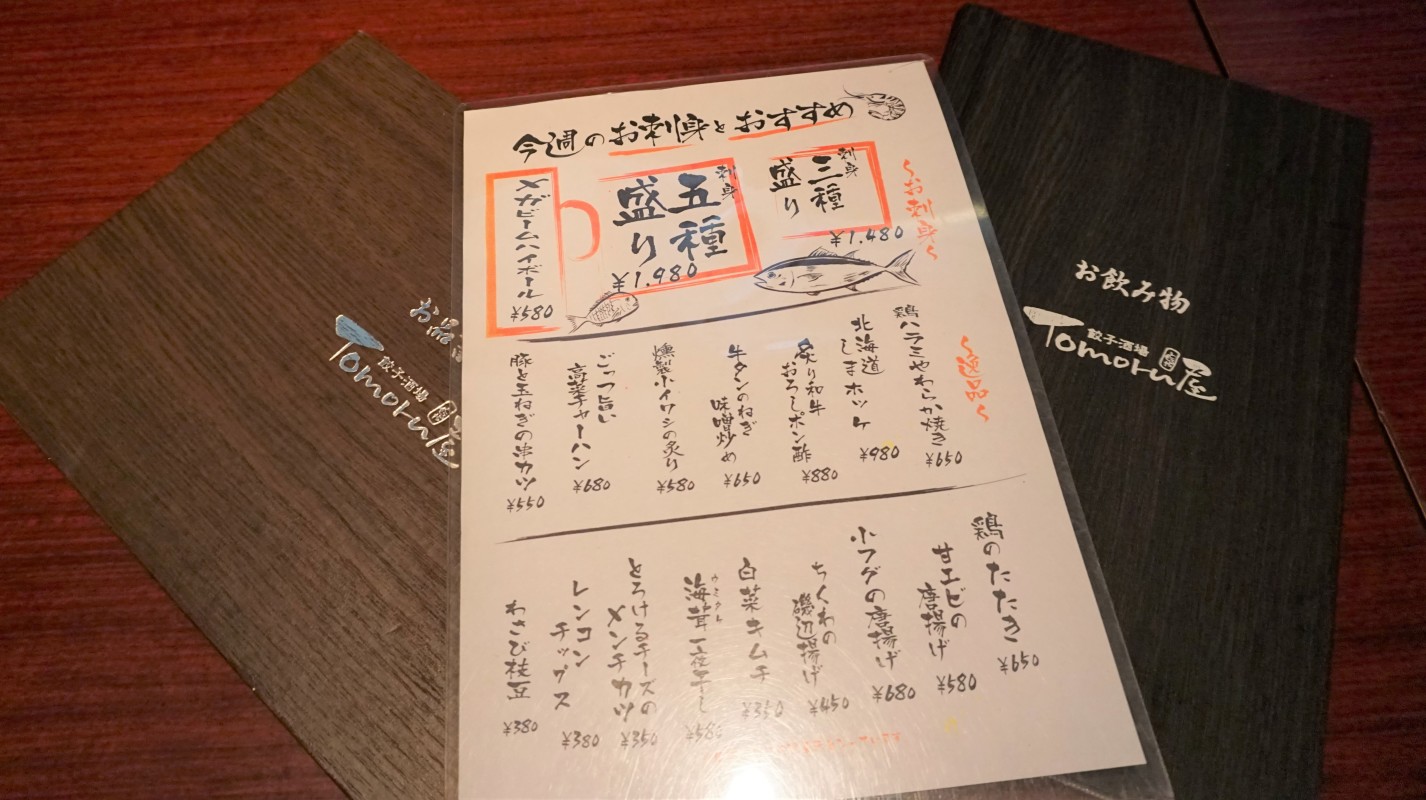 今週のお刺身とおすすめ
〜お刺身〜
刺身
三種
盛り
¥1.480
刺身
五種
盛り
¥1.980
メガビームハイボール
¥580
〜逸品〜
鶏ハラミやわらか焼き
¥650
北海道
しまホッケ
¥980
炙り和牛
おろしポン酢
¥880
牛タンのねぎ
味噌炒め
¥650
燻製小イワシの炙り
¥580
ごっつ旨い
高菜チャーハン
¥680
豚と玉ねぎの串カツ
¥550
鶏のたたき
¥650
甘エビの
唐揚げ
¥580
小フグの唐揚げ
¥680
ちくわの
磯辺揚げ
¥450
白菜キムチ
¥350
海茸一夜干し
¥580
とろけるチーズの
メンチカツ
¥350
レンコン
チップス
¥380
わさび枝豆
¥380
お品
餃子酒場
Tomoru屋
お飲み物
餃子酒場
Tomoru屋